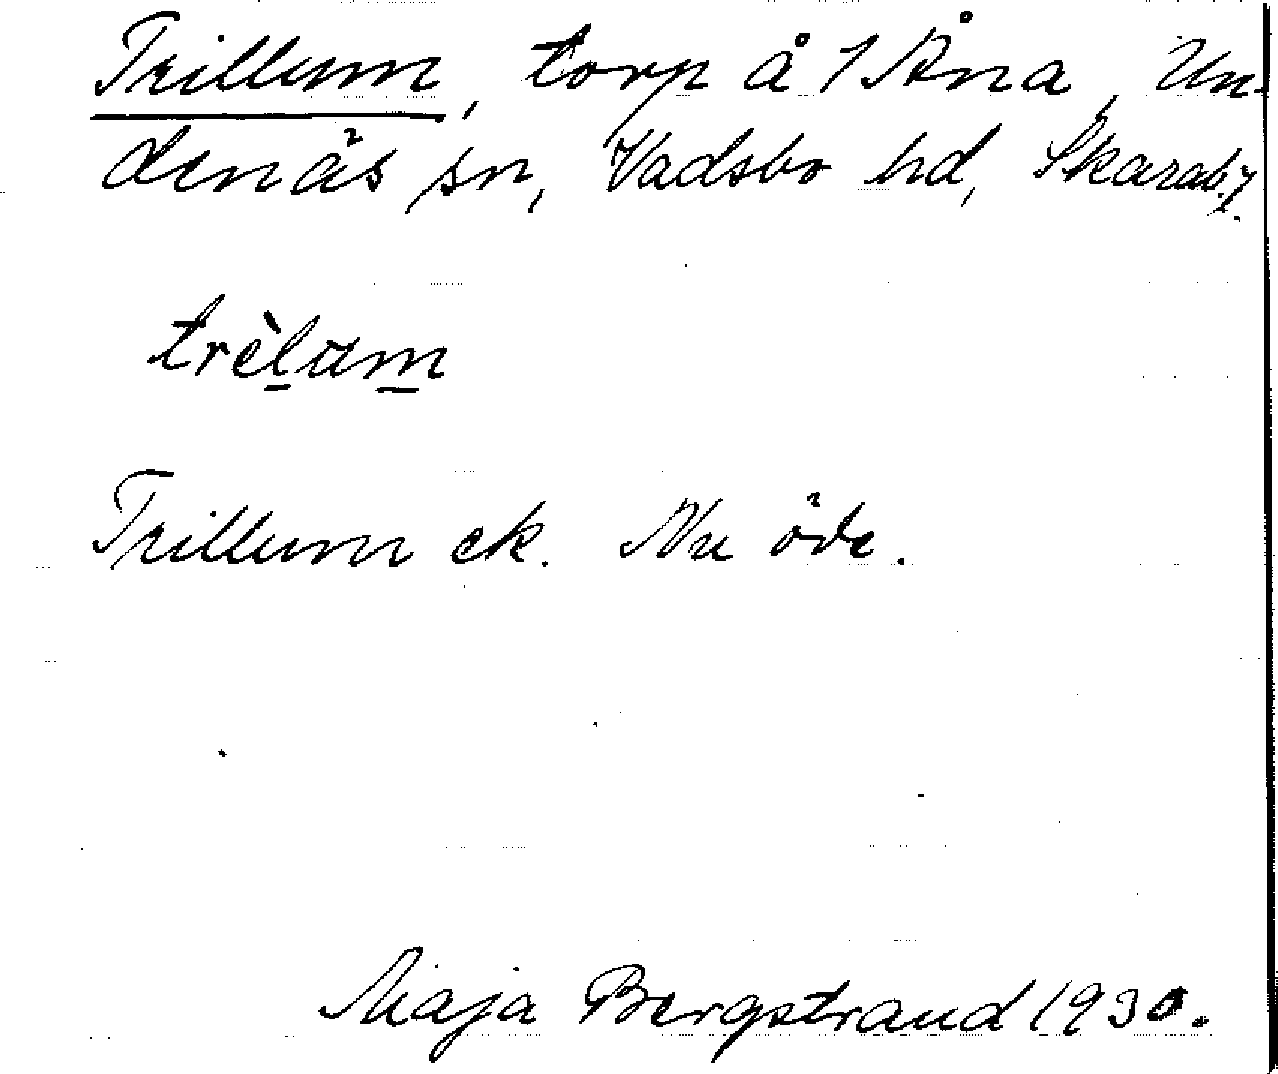 Trillum, torp å 1 Åna, Un-
denäs sn, Vadsbo hd, Skarab. l.
trèlum
Trillum ek. Nu öde.
Maja Bergstrand 1930.